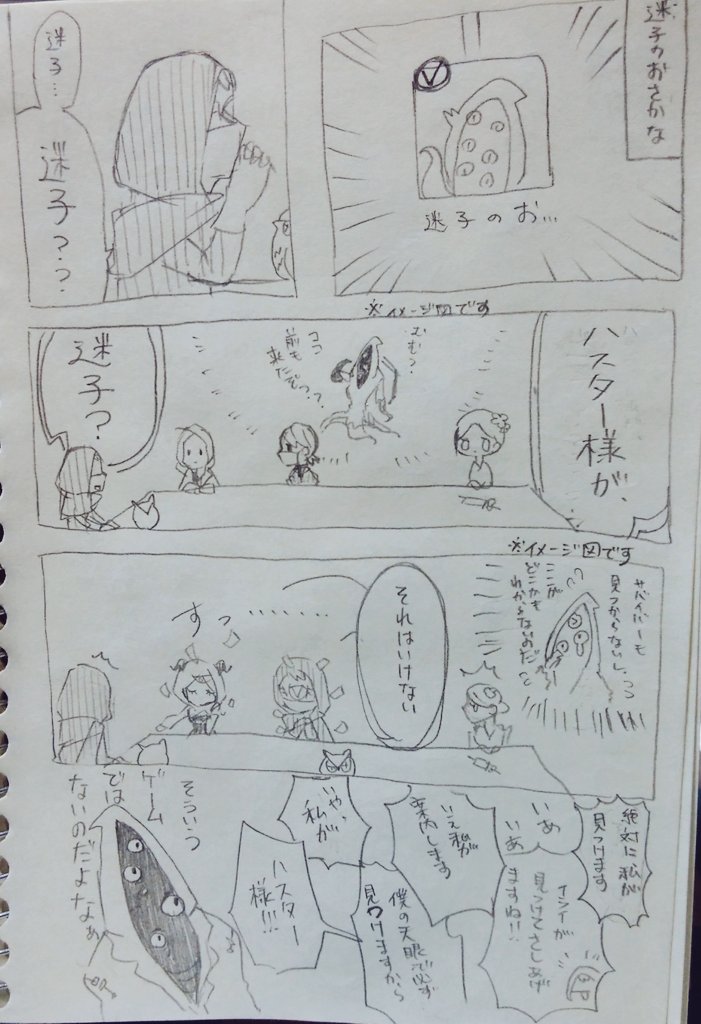 迷子のおさかな
迷子のお…
迷子…
迷子??
※イメージ図です
ハスター様が、
むむっ?
ココ
前も
来たぞっ?
迷子?
※イメージ図です
サバイバーも
見つからないし、
ここが
どこかも
わからないのだ
それはいけない
すっ
絶対に私が
見つけます
いあ
いあ
イシイが
見つけてさしあげ
ますね!!
いえ私が
案内します
僕の天眼で必ず
見つけますから
いや、
私が
ハスター
様!!!
そういう
ゲーム
では
ないのだよなぁ